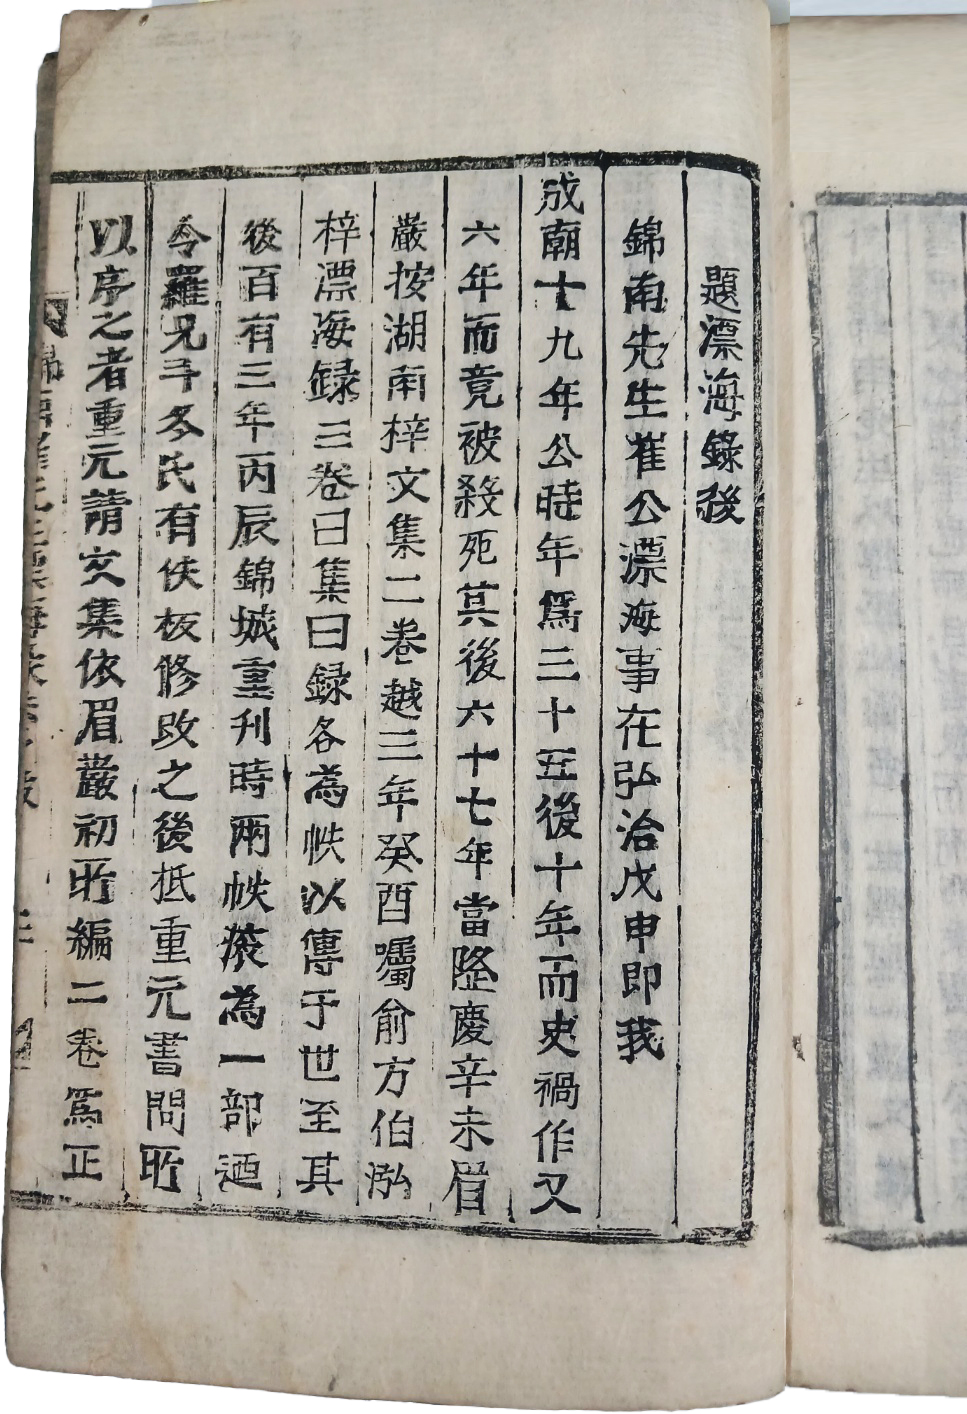 題漂海錄後
錦南先生崔公漂海事在弘治戊申即我
成廟十九年公時年爲三十五後十年而史禍作又
六年而竟被殺死其後六十七年當隆慶辛未眉
巖按湖南梓文集二卷越三年癸酉囑俞方伯泓
梓漂海録三卷曰集曰録各為帙以傳于世至其
後百有三年丙辰錦城重刊時兩帙滚為一部迺
令羅兄斗冬氏有佚板修改之後抵重元書問所
以序之者重元請文集依眉巖初所編二卷爲正
錦南先生漂海錄